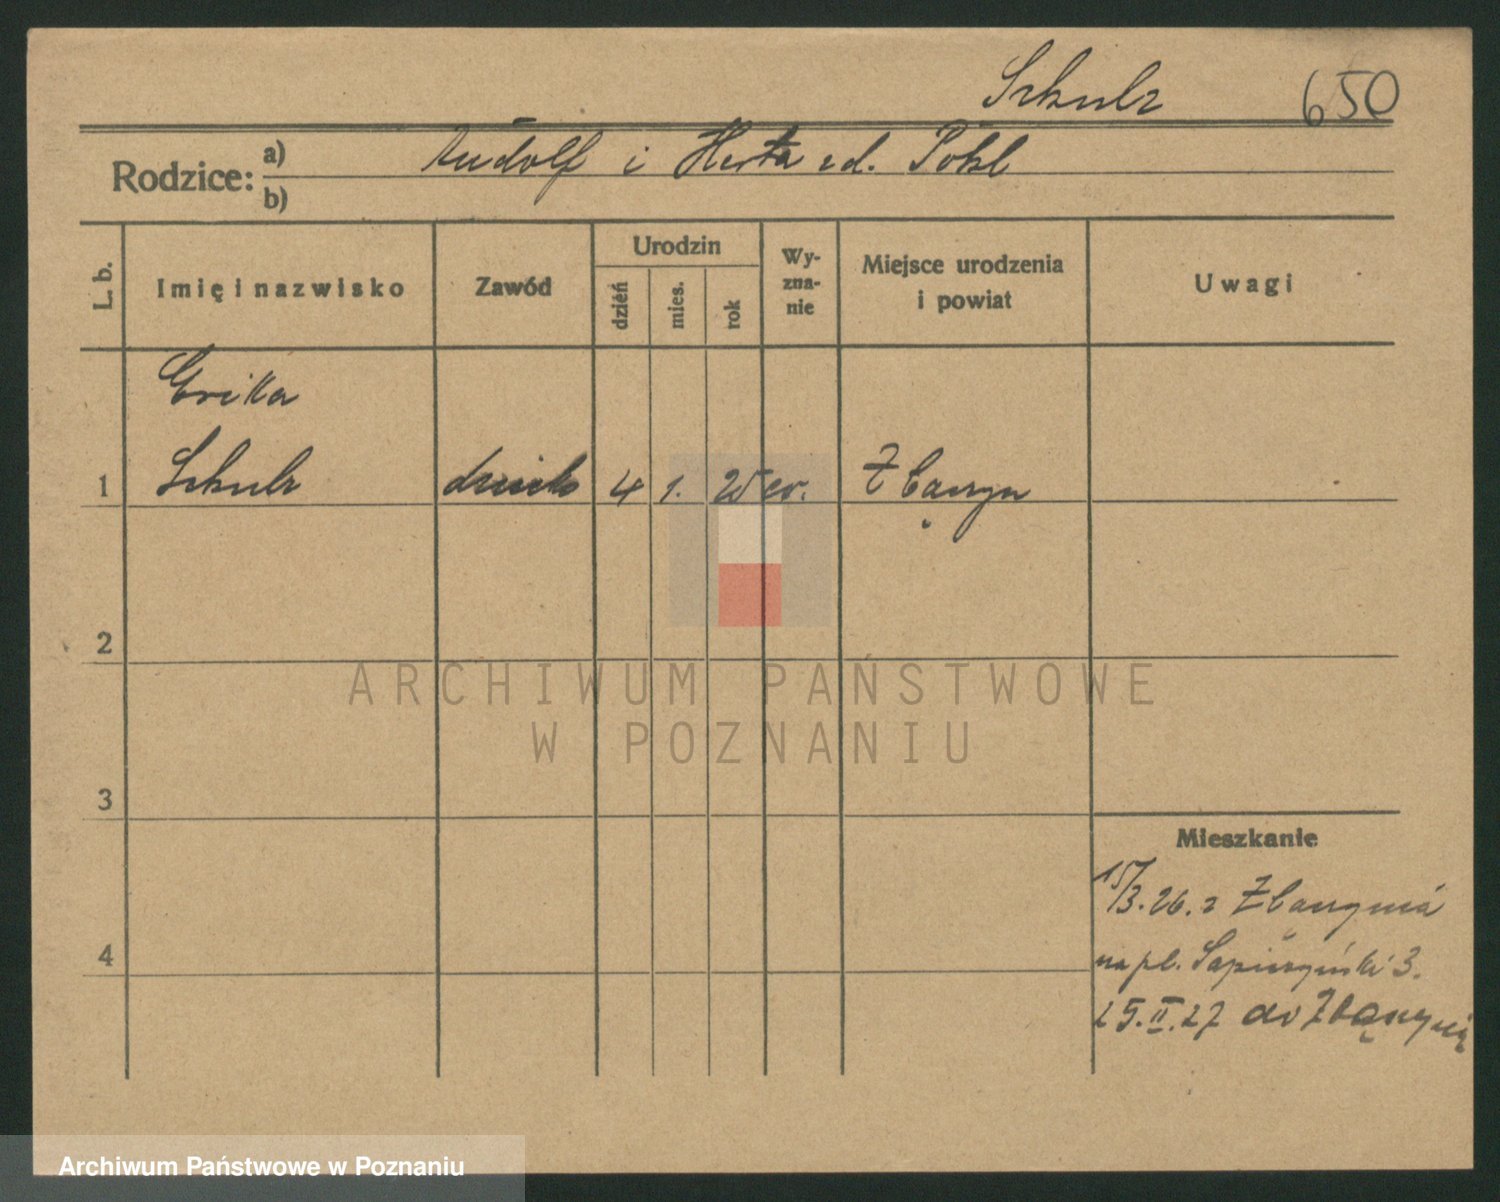 Szkulz 650
Rodzice: a) Rudolf i Herta zd. Pohl
b)
L. b. Imię i nazwisko Zawód Urodzin dzień mies. rok Wyznanie Miejsce urodzenia i powiat Uwagi
Erika
1 Szkulz dziecko 4 1. 25 ev. Zbąszyn
2
ARCHIWUM PAŃSTWOWE
W POZNANIU
3
Mieszkanie
15/3.26. z Zbąszynia
4 na pl. Sapieżyński 3.
25.II.27 do Zbąszynia
Archiwum Państwowe w Poznaniu